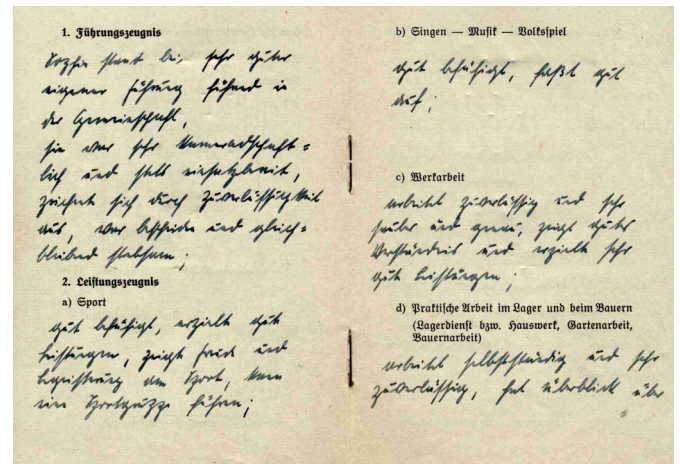 1. Führungszeugnis
Sophie stand bei sehr guter
eigener Führung führend in
der Gemeinschaft,
sie war sehr kameradschaft=
lich und stets einsatzbereit,
zeichnet sich durch Zuverlässigkeit
aus, war bescheiden und gleich=
bleibend strebsam;
2. Leistungszeugnis
a) Sport
gut befähigt, erzielt gute
Leistungen, zeigt Freude und
Begeisterung am Sport, kann
eine Sportgruppe führen;
b) Singen — Musik — Volksspiel
gut befähigt, faßt gut
auf;
c) Werkarbeit
arbeitet zuverlässig und sehr
sauber und genau, zeigt gutes
Verständnis und erzielt sehr
gute Leistungen;
d) Praktische Arbeit im Lager und beim Bauern
(Lagerdienst bzw. Hauswerk, Gartenarbeit,
Bauernarbeit)
arbeitet selbstständig und sehr
zuverlässig, hat Überblick über